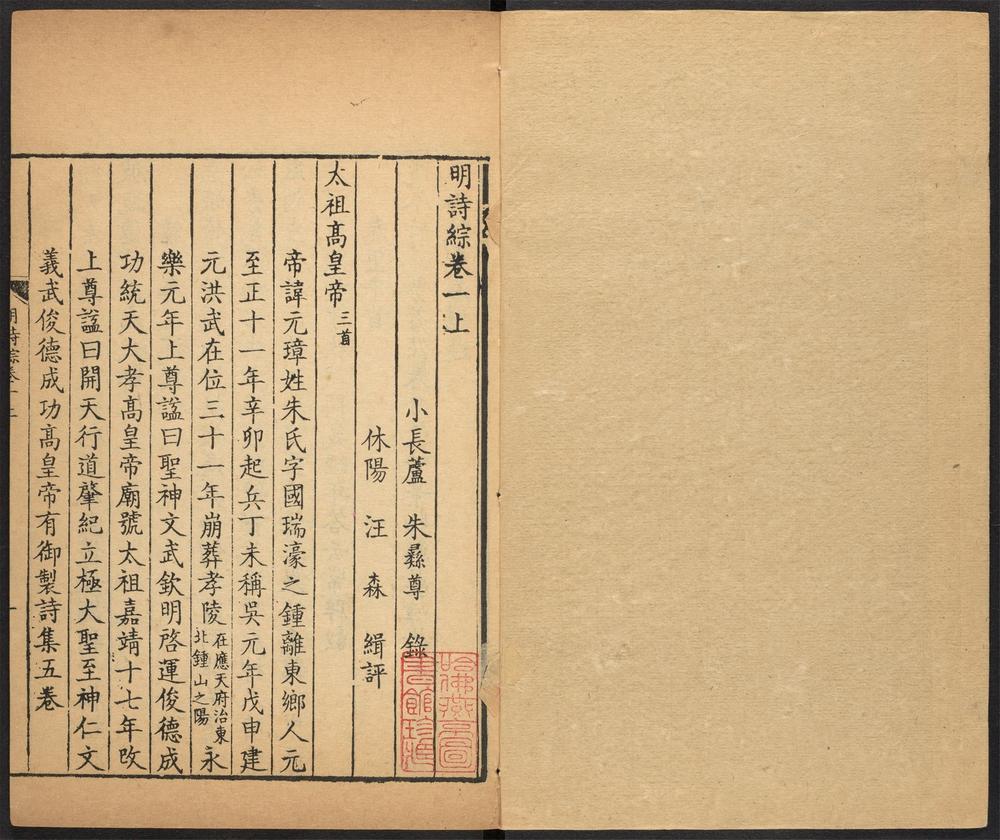 明詩綜卷一上
小長蘆 朱彞尊 錄
休陽 汪 森 緝評
太祖高皇帝三首
帝諱元璋姓朱氏字國瑞濠之鍾離東鄉人元
至正十一年辛卯起兵丁未稱吳元年戊申建
元洪武在位三十一年崩葬孝陵在應天府治東北鍾山之陽永
樂元年上尊諡曰聖神文武欽明啓運俊德成
功統天大孝高皇帝廟號太祖嘉靖十七年改
上尊諡曰開天行道肇紀立極大聖至神仁文
義武俊德成功高皇帝有御製詩集五卷
明詩綜卷一上
一
哈佛燕京圖
書館珍藏